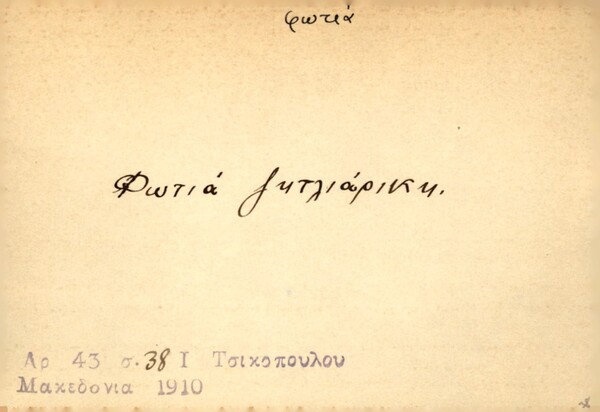 φωτιά
Φωτιά ζητλιάρικη.
Αρ 43 σ. 38 Ι Τσικοπουλου
Μακεδονια 1910